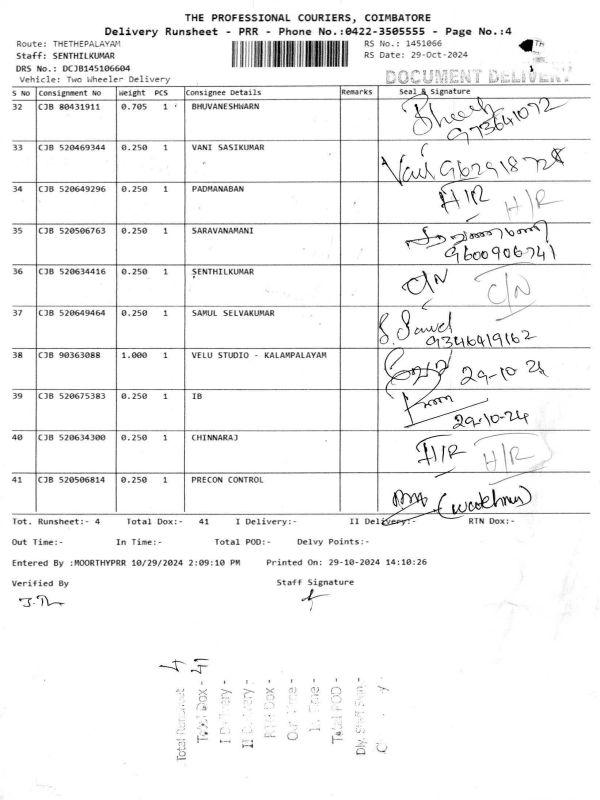 THE PROFESSIONAL COURIERS, COIMBATORE
Delivery Runsheet - PRR - Phone No.:0422-3505555 - Page No.:4
Route: THETHEPALAYAM RS No.: 1451066
Staff: SENTHILKUMAR RS Date: 29-Oct-2024
DRS No.: DCJB145106604
Vehicle: Two Wheeler Delivery DOCUMENT DELIVERY
S No Consignment No Weight PCS Consignee Details Remarks Seal & Signature
32 CJB 80431911 0.705 1 BHUVANESHWARN
33 CJB 520469344 0.250 1 VANI SASIKUMAR Vani
34 CJB 520649296 0.250 1 PADMANABAN H/R H/R
35 CJB 520506763 0.250 1 SARAVANAMANI
9600906741
36 CJB 520634416 0.250 1 SENTHILKUMAR C/N C/N
37 CJB 520649464 0.250 1 SAMUL SELVAKUMAR
9346419162
38 CJB 90363088 1.000 1 VELU STUDIO - KALAMPALAYAM 29-10-24
39 CJB 520675383 0.250 1 IB
29-10-24
40 CJB 520634300 0.250 1 CHINNARAJ H/R H/R
41 CJB 520506814 0.250 1 PRECON CONTROL
Tot. Runsheet:- 4 Total Dox:- 41 I Delivery:- II Delivery:- RTN Dox:-
Out Time:- In Time:- Total POD:- Delvy Points:-
Entered By :MOORTHYPRR 10/29/2024 2:09:10 PM Printed On: 29-10-2024 14:10:26
Verified By Staff Signature
Total Runsheet 4
Total Dox - 41
I Delivery -
II Delivery -
RTN Dox -
Out Time -
In Time -
Total POD -